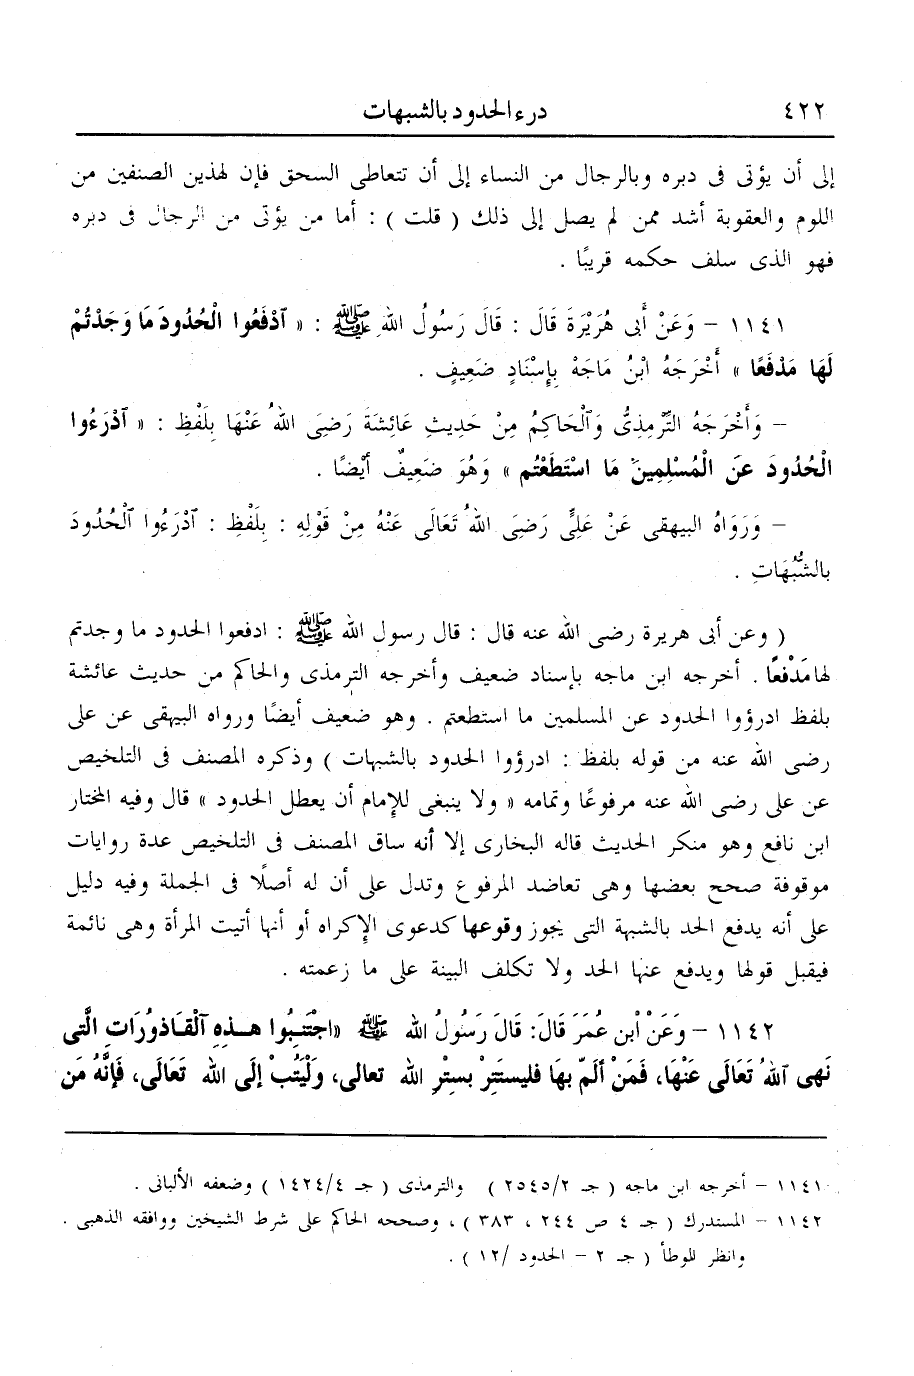 ٤٢٢ درء الحدود بالشبهات
إلى أن يؤتى فى دبره وبالرجال من النساء إلى أن تتعاطى السحق فإن لهذين الصنفين من
اللوم والعقوبة أشد ممن لم يصل إلى ذلك ( قلت ) : أما من يؤتى من الرجال فى دبره
فهو الذى سلف حكمه قريبًا .
١١٤١ – وَعَنْ أَبِى هُرَيْرَةَ قَالَ : قَالَ رَسُولُ اللهِ ﷺ : « آدْفَعُوا الْحُدُودَ مَا وَجَدْتُمْ
لَهَا مَدْفَعًا » أَخْرَجَهُ ابْنُ مَاجَهْ بِإِسْنَادٍ ضَعِيفٍ .
– وَأَخْرَجَهُ التِّرْمِذِىُّ وَآلْحَاكِمُ مِنْ حَدِيثِ عَائِشَةَ رَضِىَ اللهُ عَنْهَا بِلَفْظِ : « آدْرَءُوا
الْحُدُودَ عَنِ الْمُسْلِمِينَ مَا اسْتَطَعْتُم » وَهُوَ ضَعِيفٌ أَيْضًا .
– وَرَوَاهُ البيهقى عَنْ عَلِىٍّ رَضِىَ اللهُ تَعَالَى عَنْهُ مِنْ قَوْلِهِ : بِلَفْظِ : آدْرَءُوا آلْحُدُودَ
بالشُّبُهَاتِ .
( وعن أبى هريرة رضى الله عنه قال : قال رسول الله ﷺ : ادفعوا الحدود ما وجدتم
لها مَدْفَعًا . أخرجه ابن ماجه بإسناد ضعيف وأخرجه الترمذى والحاكم من حديث عائشة
بلفظ ادرؤوا الحدود عن المسلمين ما استطعتم . وهو ضعيف أيضًا ورواه البيهقى عن على
رضى الله عنه من قوله بلفظ : ادرؤوا الحدود بالشبهات ) وذكره المصنف فى التلخيص
عن على رضى الله عنه مرفوعًا وتمامه « ولا ينبغى للإمام أن يعطل الحدود » قال وفيه المختار
ابن نافع وهو منكر الحديث قاله البخارى إلا أنه ساق المصنف فى التلخيص عدة روايات
موقوفة صحح بعضها وهى تعاضد المرفوع وتدل على أن له أصلًا فى الجملة وفيه دليل
على أنه يدفع الحد بالشبهة التى يجوز وقوعها كدعوى الإكراه أو أنها أتيت المرأة وهى نائمة
فيقبل قولها ويدفع عنها الحد ولا تكلف البينة على ما زعمته .
١١٤٢ – وَعَنْ ابن عُمَرَ قَالَ: قَالَ رَسُولُ الله ﷺ «اجْتَنِبُوا هـذِهِ آلْقَاذُورَاتِ الَّتِى
نَهى آللهُ تَعَالَى عَنْهَا، فَمَنْ أَلَمّ بهَا فليستَتِرْ بسِتْرِ الله تعالى، ولْيَتُبْ إلَى الله تَعَالَى، فَإِنَّهُ مَن
١١٤١ – أخرجه ابن ماجه ( جـ ٢٥٤٥/٢ ) والترمذى ( جـ ١٤٢٤/٤ ) وضعفه الألبانى .
١١٤٢ – المستدرك ( جـ ٤ ص ٢٤٤ ، ٣٨٣ ) ، وصححه الحاكم على شرط الشيخين ووافقه الذهبى .
وانظر للموطأ ( جـ ٢ – الحدود /١٢ ) .